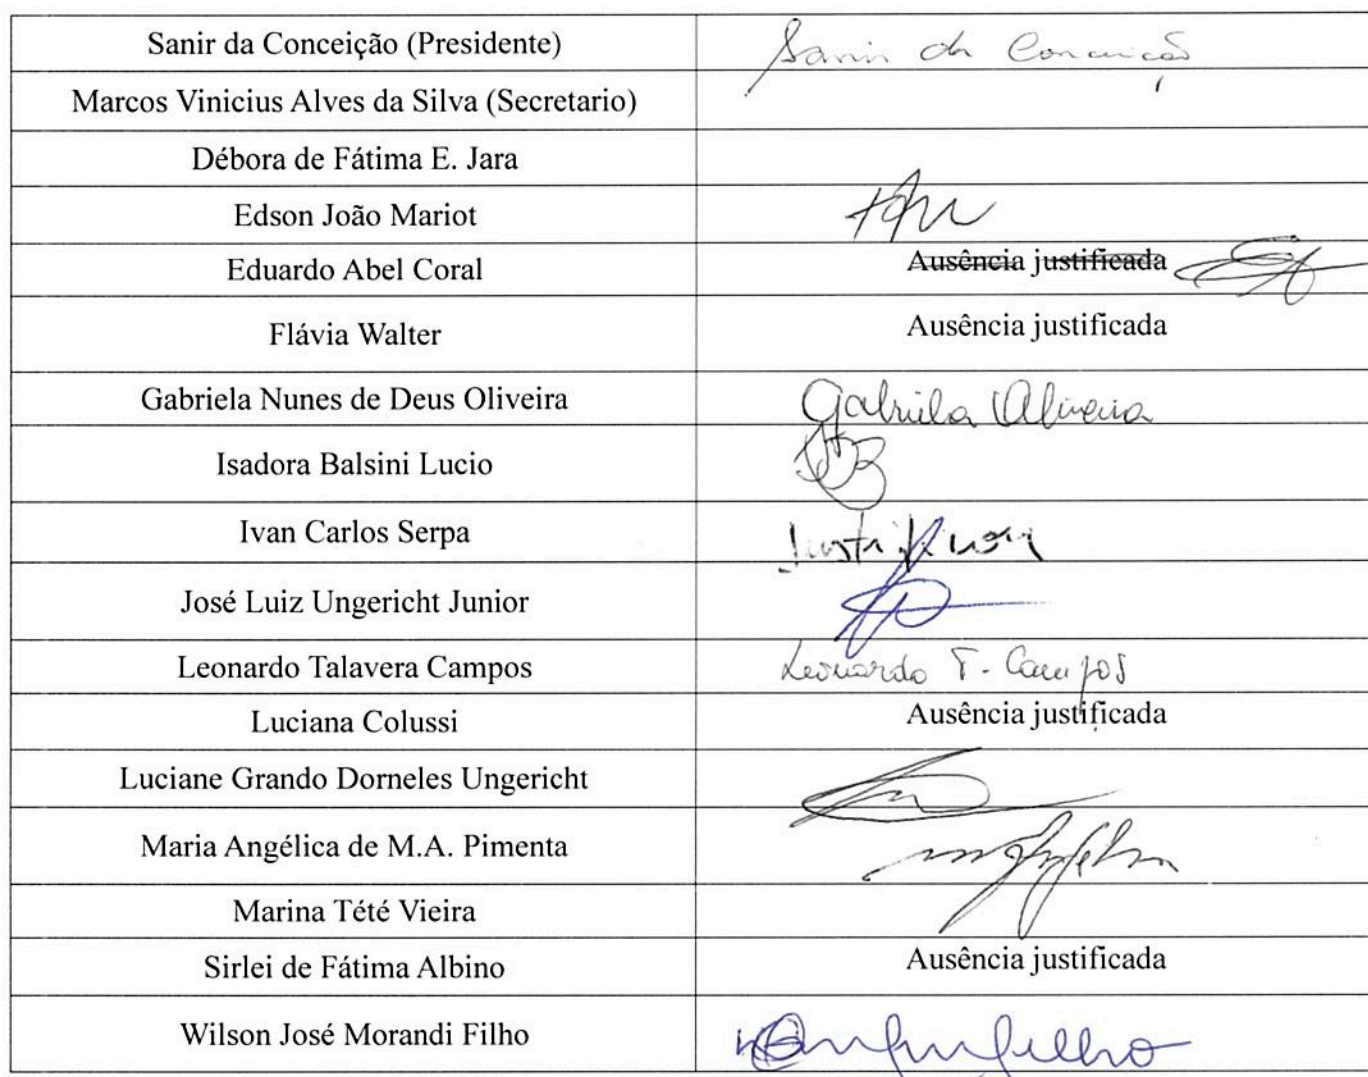 Sanir da Conceição (Presidente) Sanir da Conceição
Marcos Vinicius Alves da Silva (Secretario)
Débora de Fátima E. Jara
Edson João Mariot
Eduardo Abel Coral Ausência justificada
Flávia Walter Ausência justificada
Gabriela Nunes de Deus Oliveira Gabriela Oliveira
Isadora Balsini Lucio
Ivan Carlos Serpa Justificou
José Luiz Ungericht Junior
Leonardo Talavera Campos Leonardo T. Campos
Luciana Colussi Ausência justificada
Luciane Grando Dorneles Ungericht
Maria Angélica de M.A. Pimenta
Marina Tété Vieira
Sirlei de Fátima Albino Ausência justificada
Wilson José Morandi Filho